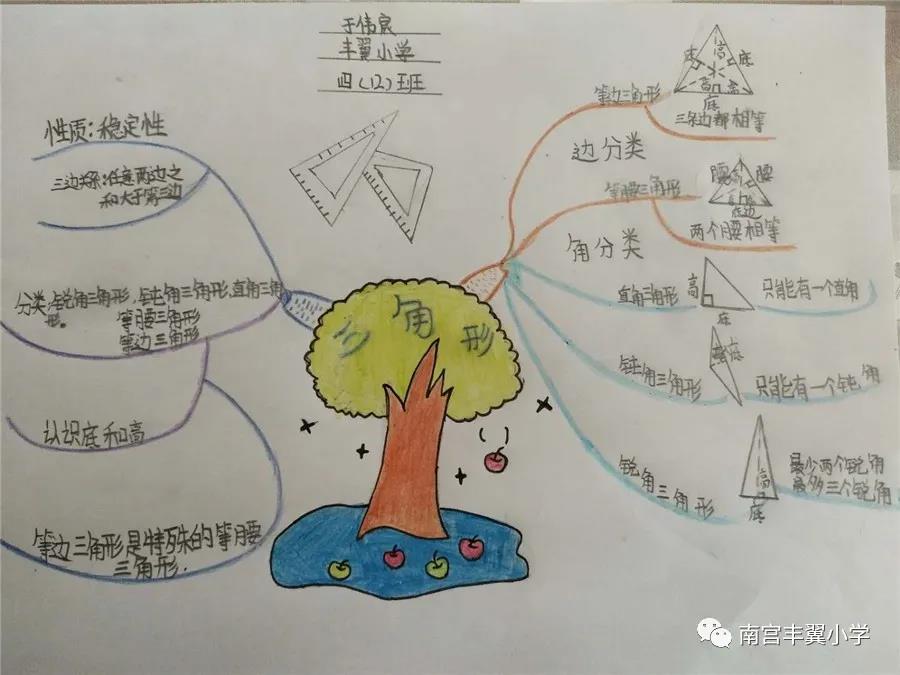 于伟宸
丰翼小学
四(12)班
性质:稳定性
三边关系:任意两边之
和大于第三边
分类:锐角三角形,钝角三角形,直角三角
形。
等腰三角形
等边三角形
认识底和高
等边三角形是特殊的等腰
三角形.
三角形
等边三角形
底
高
底
高
高
底
三条边都相等
边分类
等腰三角形
腰
高
腰
底边
两个腰相等
角分类
直角三角形
高
底
只能有一个直角
钝角三角形
高
底
只能有一个钝角
锐角三角形
高
底
最少两个锐角
最多三个锐角
南宫丰翼小学